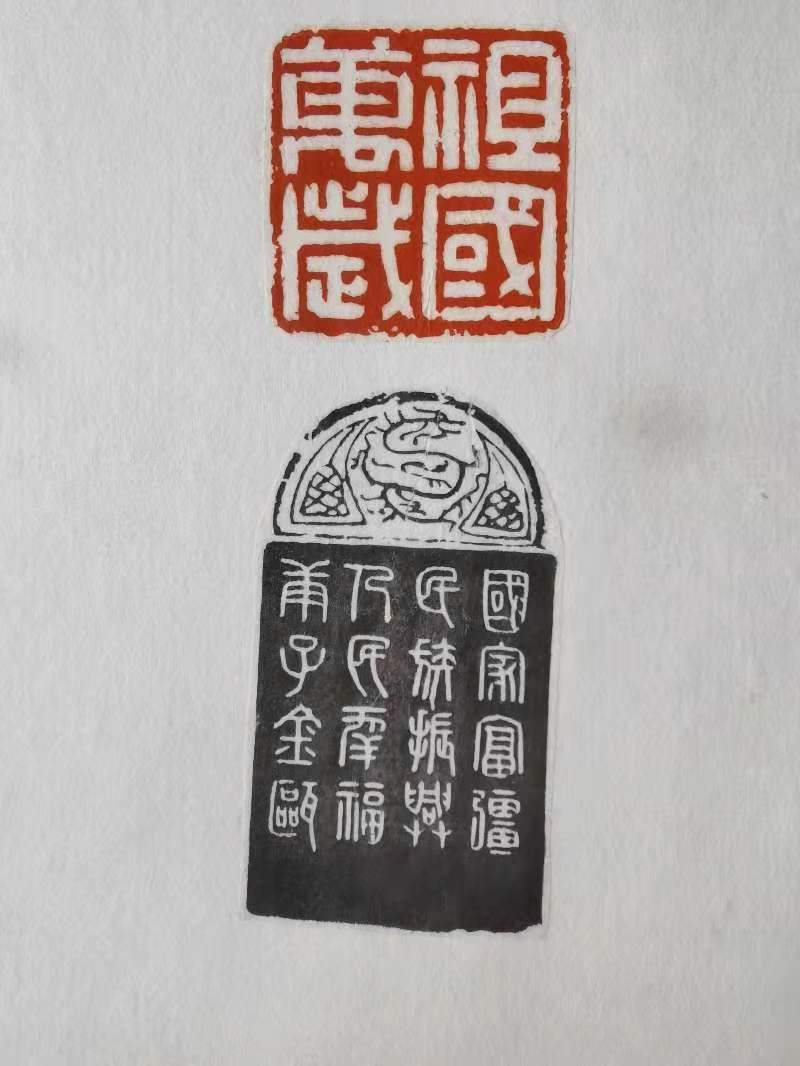 祖國
萬歲
國家富彊
民族振興
人民幸福
庚子金甌